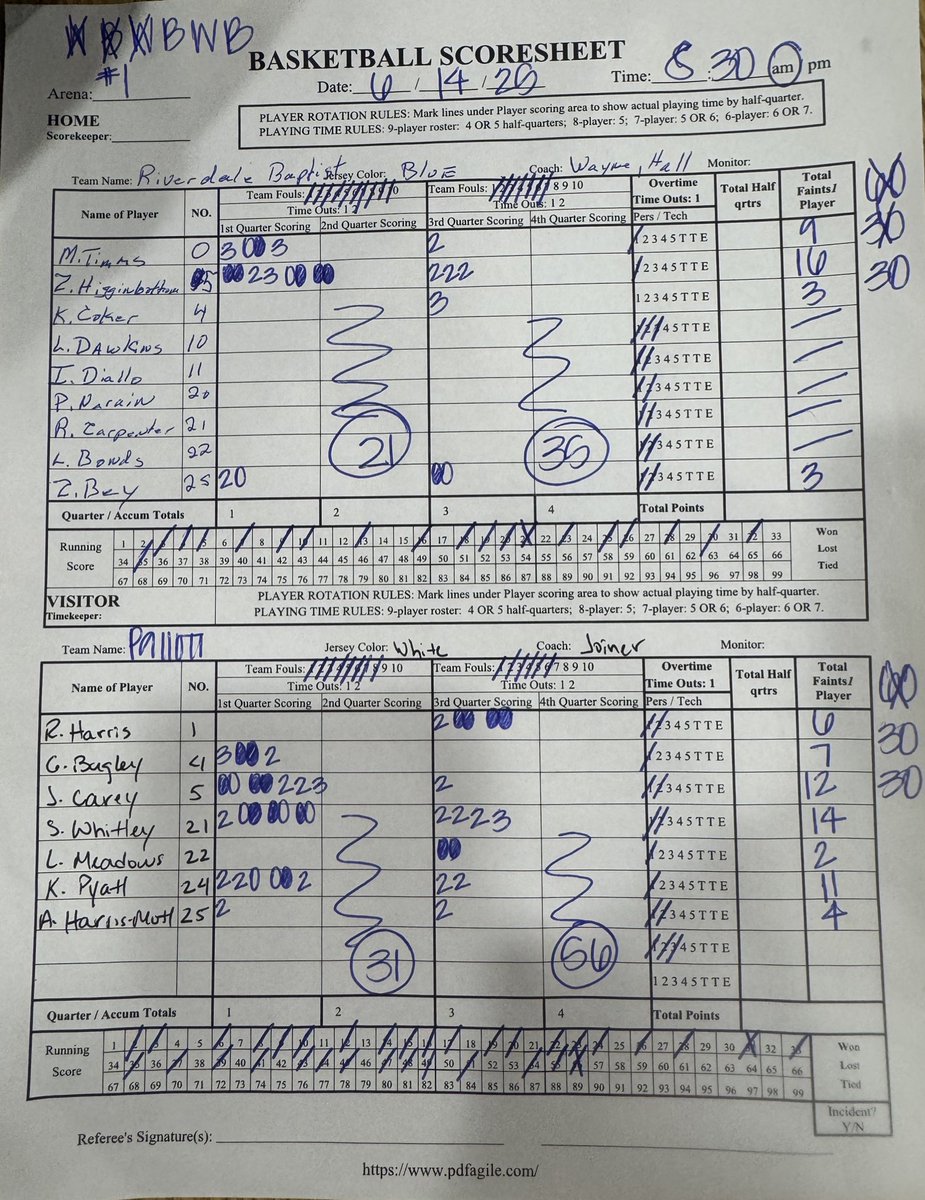 BWB
BASKETBALL SCORESHEET
Arena: #1 Date: 6 / 14 / 25 Time: 8:30 am pm
HOME
Scorekeeper:
PLAYER ROTATION RULES: Mark lines under Player scoring area to show actual playing time by half-quarter.
PLAYING TIME RULES: 9-player roster: 4 OR 5 half-quarters; 8-player: 5; 7-player: 5 OR 6; 6-player: 6 OR 7.
Team Name: Riverdale Baptist Jersey Color: Blue Coach: Wayne, Hall Monitor:
Name of Player NO. Team Fouls: 10 Team Fouls: 8 9 10 Overtime Total Half qrtrs Total Faints/ Player
Time Outs: 1 2 Time Outs: 1 2 Time Outs: 1
1st Quarter Scoring 2nd Quarter Scoring 3rd Quarter Scoring 4th Quarter Scoring Pers / Tech
30
30
M. Timms 0 3 3 2 1 2 3 4 5 T T E 9
Z. Higginbottom 5 23 222 1 2 3 4 5 T T E 16
K. Coker 4 3 1 2 3 4 5 T T E 3
L. Dawkins 10 4 5 T T E
I. Diallo 11 2 3 4 5 T T E
P. Narain 20 2 3 4 5 T T E
R. Carpenter 21 2 3 4 5 T T E
L. Bonds 22 21 35 2 3 4 5 T T E
Z. Bey 25 20 2 3 4 5 T T E 3
Quarter / Accum Totals 1 2 3 4 Total Points
Running Score 1 2 3 4 5 6 7 8 9 10 11 12 13 14 15 16 17 18 19 20 21 22 23 24 25 26 27 28 29 30 31 32 33 Won
34 35 36 37 38 39 40 41 42 43 44 45 46 47 48 49 50 51 52 53 54 55 56 57 58 59 60 61 62 63 64 65 66 Lost
67 68 69 70 71 72 73 74 75 76 77 78 79 80 81 82 83 84 85 86 87 88 89 90 91 92 93 94 95 96 97 98 99 Tied
VISITOR
Timekeeper:
PLAYER ROTATION RULES: Mark lines under Player scoring area to show actual playing time by half-quarter.
PLAYING TIME RULES: 9-player roster: 4 OR 5 half-quarters; 8-player: 5; 7-player: 5 OR 6; 6-player: 6 OR 7.
Team Name: Pallotti Jersey Color: White Coach: Joiner Monitor:
Name of Player NO. Team Fouls: 9 10 Team Fouls: 7 8 9 10 Overtime Total Half qrtrs Total Faints/ Player
Time Outs: 1 2 Time Outs: 1 2 Time Outs: 1
1st Quarter Scoring 2nd Quarter Scoring 3rd Quarter Scoring 4th Quarter Scoring Pers / Tech
30
30
R. Harris 1 2 3 4 5 T T E 6
C. Bagley 4 3 2 2 3 4 5 T T E 7
J. Carey 5 223 2 3 4 5 T T E 12
S. Whitley 21 2 2223 3 4 5 T T E 14
L. Meadows 22 2 3 4 5 T T E 2
K. Pyatt 24 220 2 22 2 3 4 5 T T E 11
A. Harris-Mott 25 2 2 3 4 5 T T E 4
31 56 4 5 T T E
1 2 3 4 5 T T E
Quarter / Accum Totals 1 2 3 4 Total Points
Running Score 1 2 3 4 5 6 7 8 9 10 11 12 13 14 15 16 17 18 19 20 21 22 23 24 25 26 27 28 29 30 31 32 33 Won
34 35 36 37 38 39 40 41 42 43 44 45 46 47 48 49 50 51 52 53 54 55 56 57 58 59 60 61 62 63 64 65 66 Lost
67 68 69 70 71 72 73 74 75 76 77 78 79 80 81 82 83 84 85 86 87 88 89 90 91 92 93 94 95 96 97 98 99 Tied
Incident? Y/N
Referee's Signature(s):
https://www.pdfagile.com/